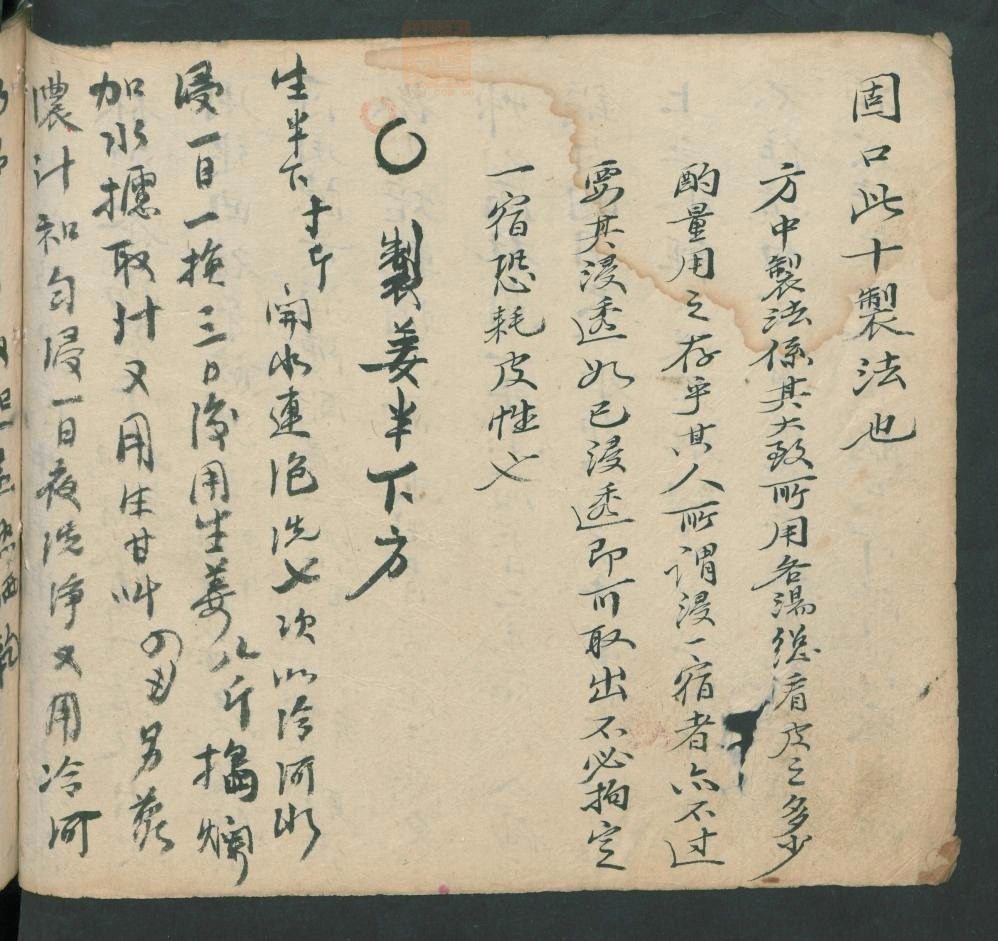 固口此十製法也
方中製法係其大致所用各湯總看皮之多少
酌量用之存乎其人所謂浸一宿者亦不过
要其浸透如已浸透即可取出不必拘定
一宿恐耗皮性也
〇製姜半下方
生半下十斤 開水連泡洗七次以冷河水
浸一日一换三日後用生姜八斤搗爛
加水攄取汁又用生甘叫 另熬
濃汁和匀浸一日夜洗淨又用冷河